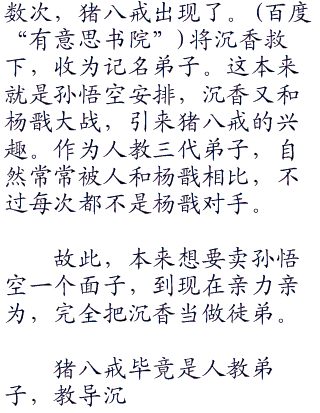 数次，猪八戒出现了。(百度
“有意思书院”)将沉香救
下，收为记名弟子。这本来
就是孙悟空安排，沉香又和
杨戬大战，引来猪八戒的兴
趣。作为人教三代弟子，自
然常常被人和杨戬相比，不
过每次都不是杨戬对手。
故此，本来想要卖孙悟
空一个面子，到现在亲力亲
为，完全把沉香当做徒弟。
猪八戒毕竟是人教弟
子，教导沉